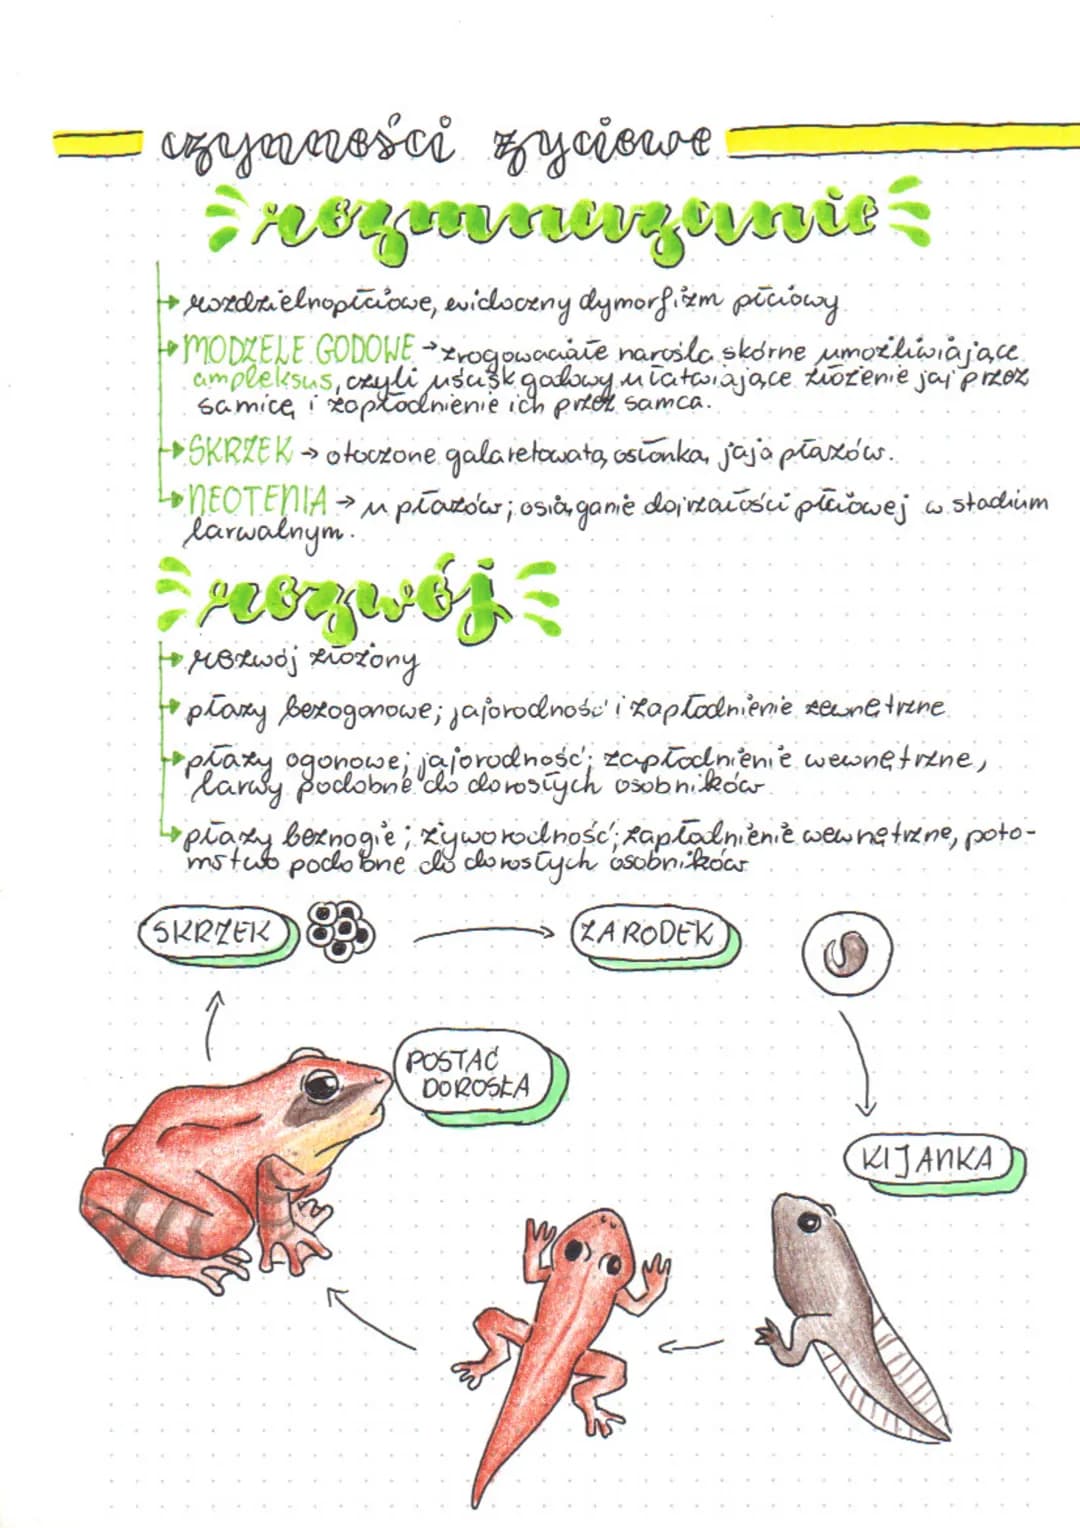 czynności życiowe
rozmnażanie
rozdzielnopłciowe, widoczny dymorfizm płciowy
MODZELE GODOWE → zrogowaciałe narośla skórne umożliwiające
ampleksus, czyli uścisk godowy ułatwiające złożenie jaj przez
samicę i zapłodnienie ich przez samca.
SKRZEK → otoczone galaretowatą osłonką jaja płazów.
NEOTENIA → u płazów; osiąganie dojrzałości płciowej w stadium
larwalnym.
rozwój
rozwój złożony
płazy bezogonowe; jajorodność i zapłodnienie zewnętrzne
płazy ogonowe; jajorodność; zapłodnienie wewnętrzne,
larwy podobne do dorosłych osobników
płazy beznogie; żyworodność; zapłodnienie wewnętrzne, poto-
mstwo podobne do dorosłych osobników
SKRZEK
ZARODEK
POSTAĆ
DOROSŁA
KIJANKA